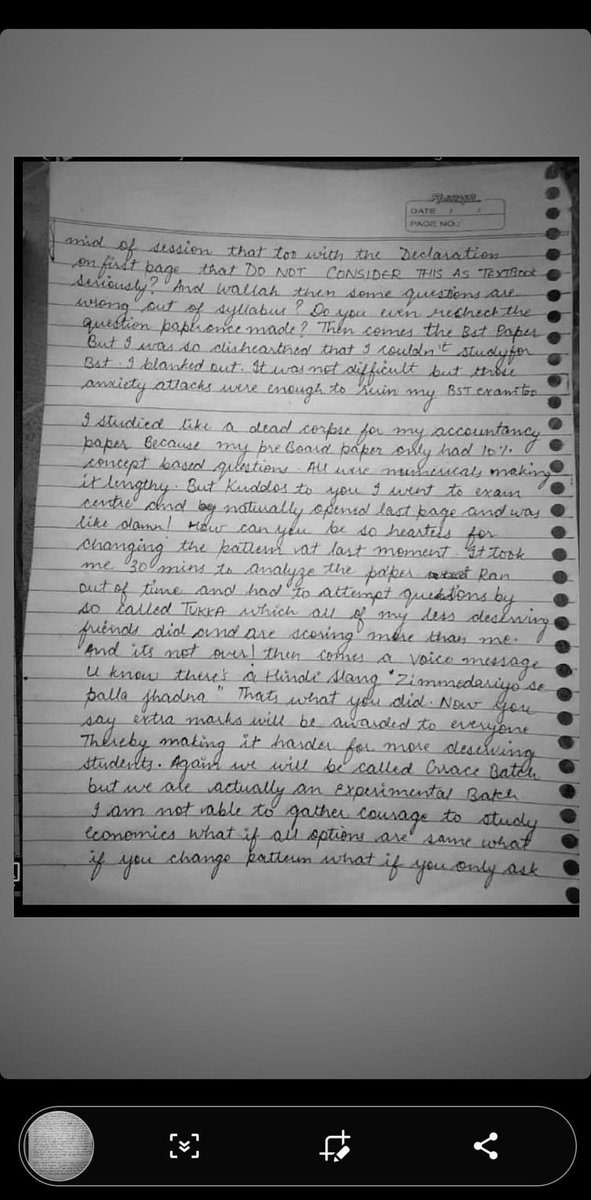 DATE / /
PAGE NO.:
mid of session that too with the Declaration
on first page that DO NOT CONSIDER THIS AS TEXTBOOK
seriously? And wallah then some questions are
wrong, out of syllabus? Do you even recheck the
question paper once made? Then comes the Bst Paper
But I was so disheartned that I couldn't study for
Bst. I blanked out. It was not difficult but those
anxiety attacks were enough to ruin my BST exam too
I studied like a dead corpse for my accountancy
paper Because my pre Board paper only had 10%
concept based questions. All were numericals making
it lengthy. But Kuddos to you I went to exam
centre and naturally opened last page and was
like damn! How can you be so heartels for
changing the pattern at last moment. It took
me 30 mins to analyze the paper Ran
out of time and had to attempt questions by
so called TUKKA which all of my less deserving
friends did and are scoring more than me.
And its not over! then comes a voice message
U know there's a Hindi Slang "Zimmedariyo se
palla jhadna" Thats what you did. Now you
say extra marks will be awarded to everyone
Thereby making it harder for more deserving
students. Again we will be called Grace Batch
but we are actually an experimental Batch.
I am not able to gather courage to study
economics what if all options are same what
if you change pattern what if you only ask